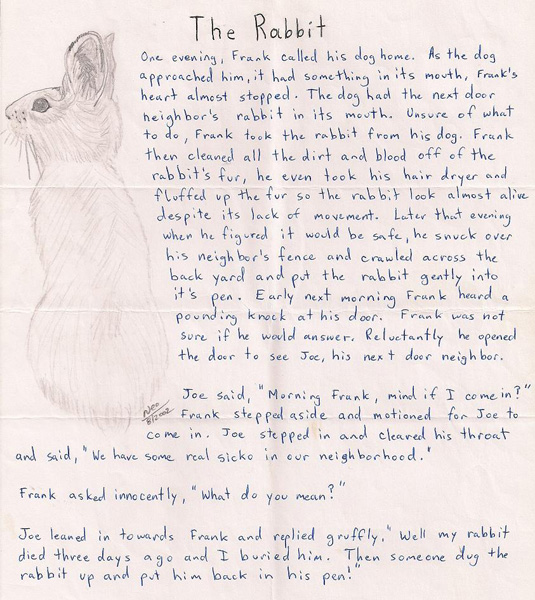 The Rabbit
One evening, Frank called his dog home. As the dog
approached him, it had something in its mouth, Frank's
heart almost stopped. The dog had the next door
neighbor's rabbit in its mouth. Unsure of what
to do, Frank took the rabbit from his dog. Frank
then cleaned all the dirt and blood off of the
rabbit's fur, he even took his hair dryer and
fluffed up the fur so the rabbit look almost alive
despite its lack of movement. Later that evening
when he figured it would be safe, he snuck over
his neighbor's fence and crawled across the
back yard and put the rabbit gently into
it's pen. Early next morning Frank heard a
pounding knock at his door. Frank was not
sure if he would answer. Reluctantly he opened
the door to see Joe, his next door neighbor.
Joe said, "Morning Frank, mind if I come in?"
Frank stepped aside and motioned for Joe to
come in. Joe stepped in and cleared his throat
and said, "We have some real sicko in our neighborhood."
Frank asked innocently, "What do you mean?"
Joe leaned in towards Frank and replied gruffly, "Well my rabbit
died three days ago and I buried him. Then someone dug the
rabbit up and put him back in his pen!"
8/2002